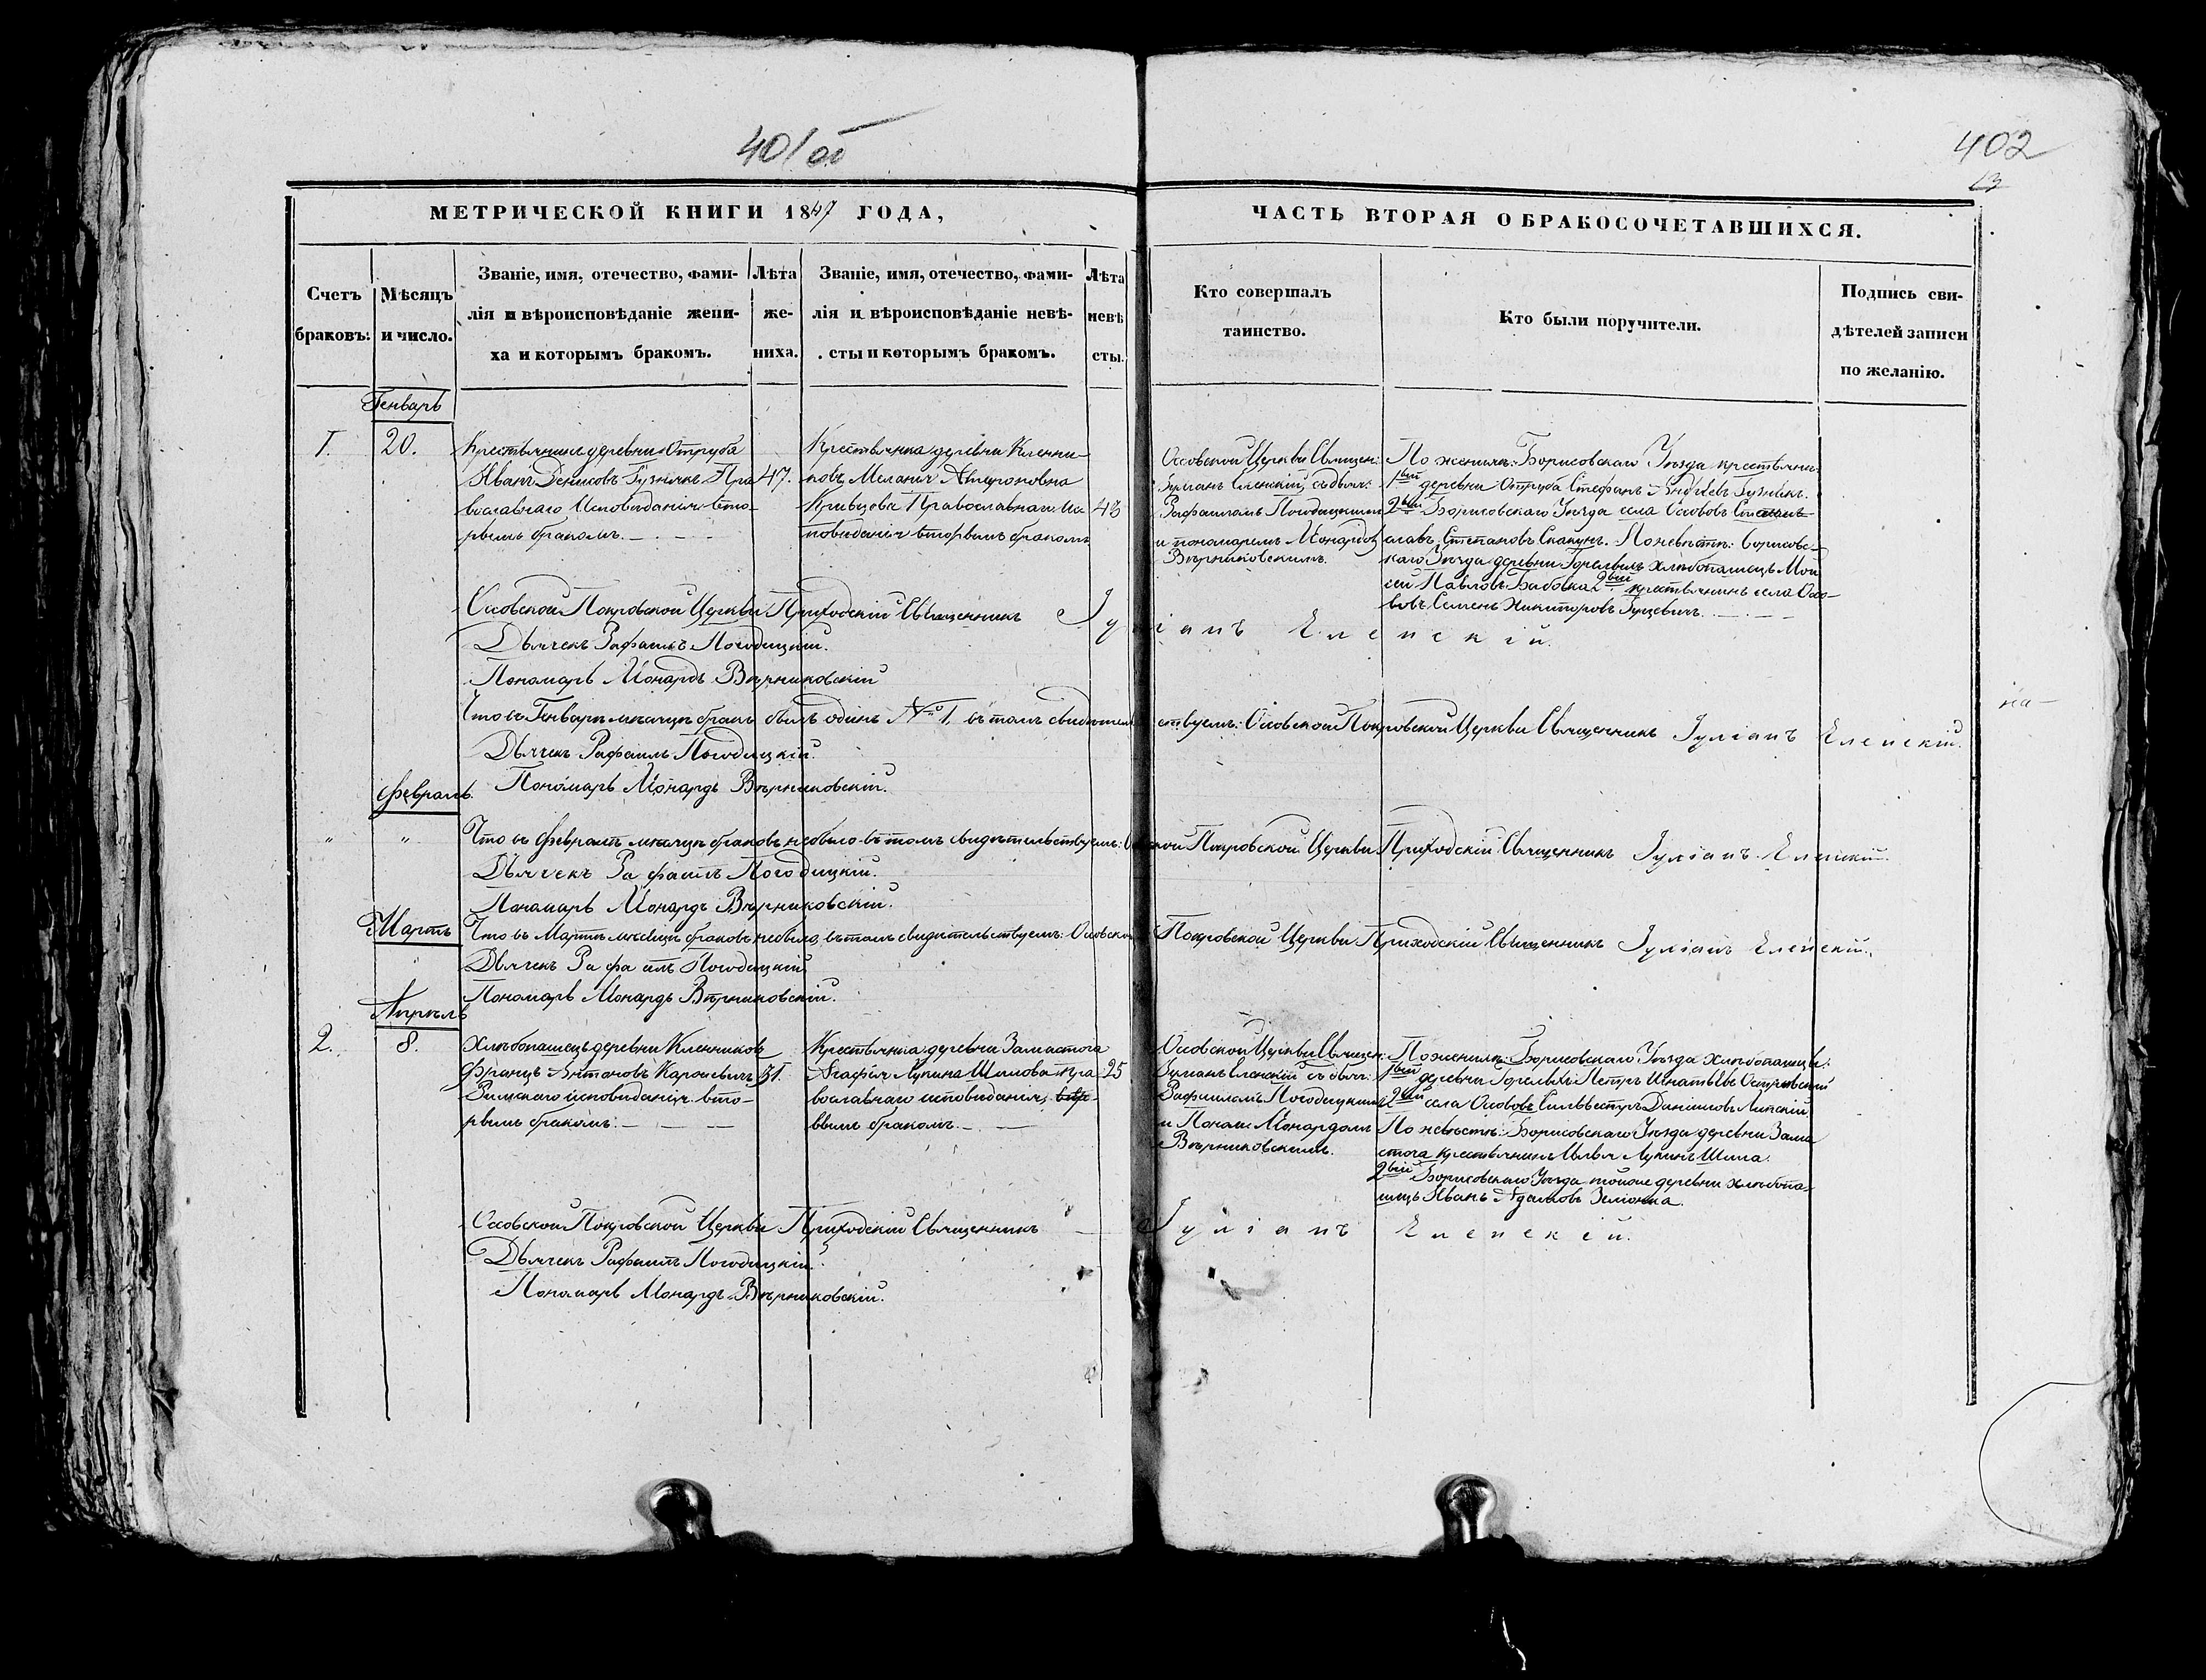 401 об
402
13
МЕТРИЧЕСКОЙ КНИГИ 1847 ГОДА,
ЧАСТЬ ВТОРАЯ О БРАКОСОЧЕТАВШИХСЯ.
Счетъ
браковъ.
Мѣсяцъ
и число.
Званіе, имя, отечество, фами-
лія и вѣроисповѣданіе жени-
ха и которымъ бракомъ.
Лѣта
же-
ниха.
Званіе, имя, отечество, фами-
лія и вѣроисповѣданіе невѣ-
сты и которымъ бракомъ.
Лѣта
невѣ
сты.
Кто совершалъ
таинство.
Кто были поручители.
Подпись сви-
дѣтелей записи
по желанію.
Генварь
1.
20.
Крестьянинъ деревни Отруба
Иванъ Денисовъ Гузникъ Пра
вославнаго Исповѣданія вто-
рымъ бракомъ.
47.
Крестьянка деревни Кленни-
ковъ Меланія
Кривцова Православнаго Ис
повѣданія вторымъ бракомъ
43
Осовской Церкви Священ:
Іуліанъ Еленскій, съ дьяч:
Рафаиломъ Погодицкимъ
и пономаремъ Монардом
Вѣрниковскимъ.
По женихѣ: Борисовскаго Уѣзда крестьяни:
1вый деревни Отруба Стефанъ Гузникъ.
2ый Борисовскаго Уѣзда села Осововъ
славъ Степановъ Скакунъ. По невѣстѣ: Борисовс-
каго Уѣзда деревни Горелыхъ хлѣбопашецъ Мои
сей Павловъ Бабовка 2ый крестьянинъ села Осо-
вовъ Семенъ Никифоровъ Гуцевичъ.
Осовской Покровской Церкви Приходскій Священникъ Іуліанъ Еленскій.
Дьячекъ Рафаилъ Погодицкій.
Пономарь Монардъ Вѣрниковскій
Что въ Генварѣ мѣсяцѣ бракъ былъ одинъ №1. въ томъ свидѣтельствуемъ: Осовской Покровской Церкви Священникъ Іуліанъ Еленскій.
на-
Дьячекъ Рафаилъ Погодицкій.
Пономарь Монардъ Вѣрниковскій.
Февраль
" "
Что въ Февралѣ мѣсяцѣ браковъ небыло въ томъ свидѣтельствуемъ: Осовской Покровской Церкви Приходскій Священникъ Іуліанъ Еленскій.
Дьячекъ Рафаилъ Погодицкій.
Пономарь Монардъ Вѣрниковскій.
Мартъ
Что въ Мартѣ мѣсяцѣ браковъ небыло, въ томъ свидѣтельствуемъ: Осовской Покровской Церкви Приходскій Священникъ Іуліанъ Еленскій.
Дьячекъ Рафаилъ Погодицкій
Пономарь Монардъ Вѣрниковскій.
Апрѣль
2.
8.
Хлѣбопашецъ деревни Кленниковъ
Францъ Антоновъ Каросевичъ
Римскаго исповѣданія вто-
рымъ бракомъ.
31.
Крестьянка деревни Замостога
Агафія Лукина Шилова пра
вославнаго исповѣданія,
вымъ бракомъ.
25
Осовской Церкви Священ:
Іуліанъ Еленскій съ дьяч:
Рафаиломъ Погодицкимъ
и Поном: Монардомъ
Вѣрниковскимъ.
По женихѣ: Борисовскаго Уѣзда хлѣбопашцы:
1вый деревни Горелыхъ Петръ Игнатьевъ Островскій
2ый села Осововъ Сильвестръ Даніиловъ Липскій
По невѣстѣ: Борисовскаго Уѣзда деревни Замо
стога крестьянинъ Илья Лукинъ Шила.
2ый Борисовскаго Уѣзда тойже деревни хлѣбопа-
шецъ Иванъ Адамовъ Зелюнка.
Осовской Покровской Церкви Приходскій Священникъ Іуліанъ Еленскій.
Дьячекъ Рафаилъ Погодицкій.
Пономарь Монардъ Вѣрниковскій.